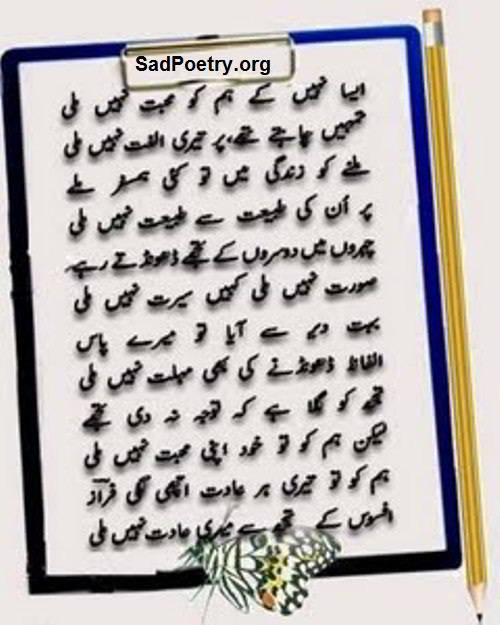 SadPoetry.org
ایسا نہیں کے ہم کو محبت نہیں ملی
تمہیں چاہتے تھے، پر تیری الفت نہیں ملی
ملنے کو زندگی میں تو کئی ہمسفر ملے
پر اُن کی طبیعت سے طبیعت نہیں ملی
چہروں میں دوسروں کے تجھے ڈھونڈتے رہے
صورت نہیں ملی کہیں سیرت نہیں ملی
بہت دیر سے آیا تو میرے پاس
الفاظ ڈھونڈنے کی بھی مہلت نہیں ملی
تجھ کو گلا ہے کہ توجہ نہ دی تجھے
لیکن ہم کو تو خود اپنی محبت نہیں ملی
ہم کو تو تیری ہر عادت اچھی لگی فراز
افسوس کے تجھ سے میری عادت نہیں ملی